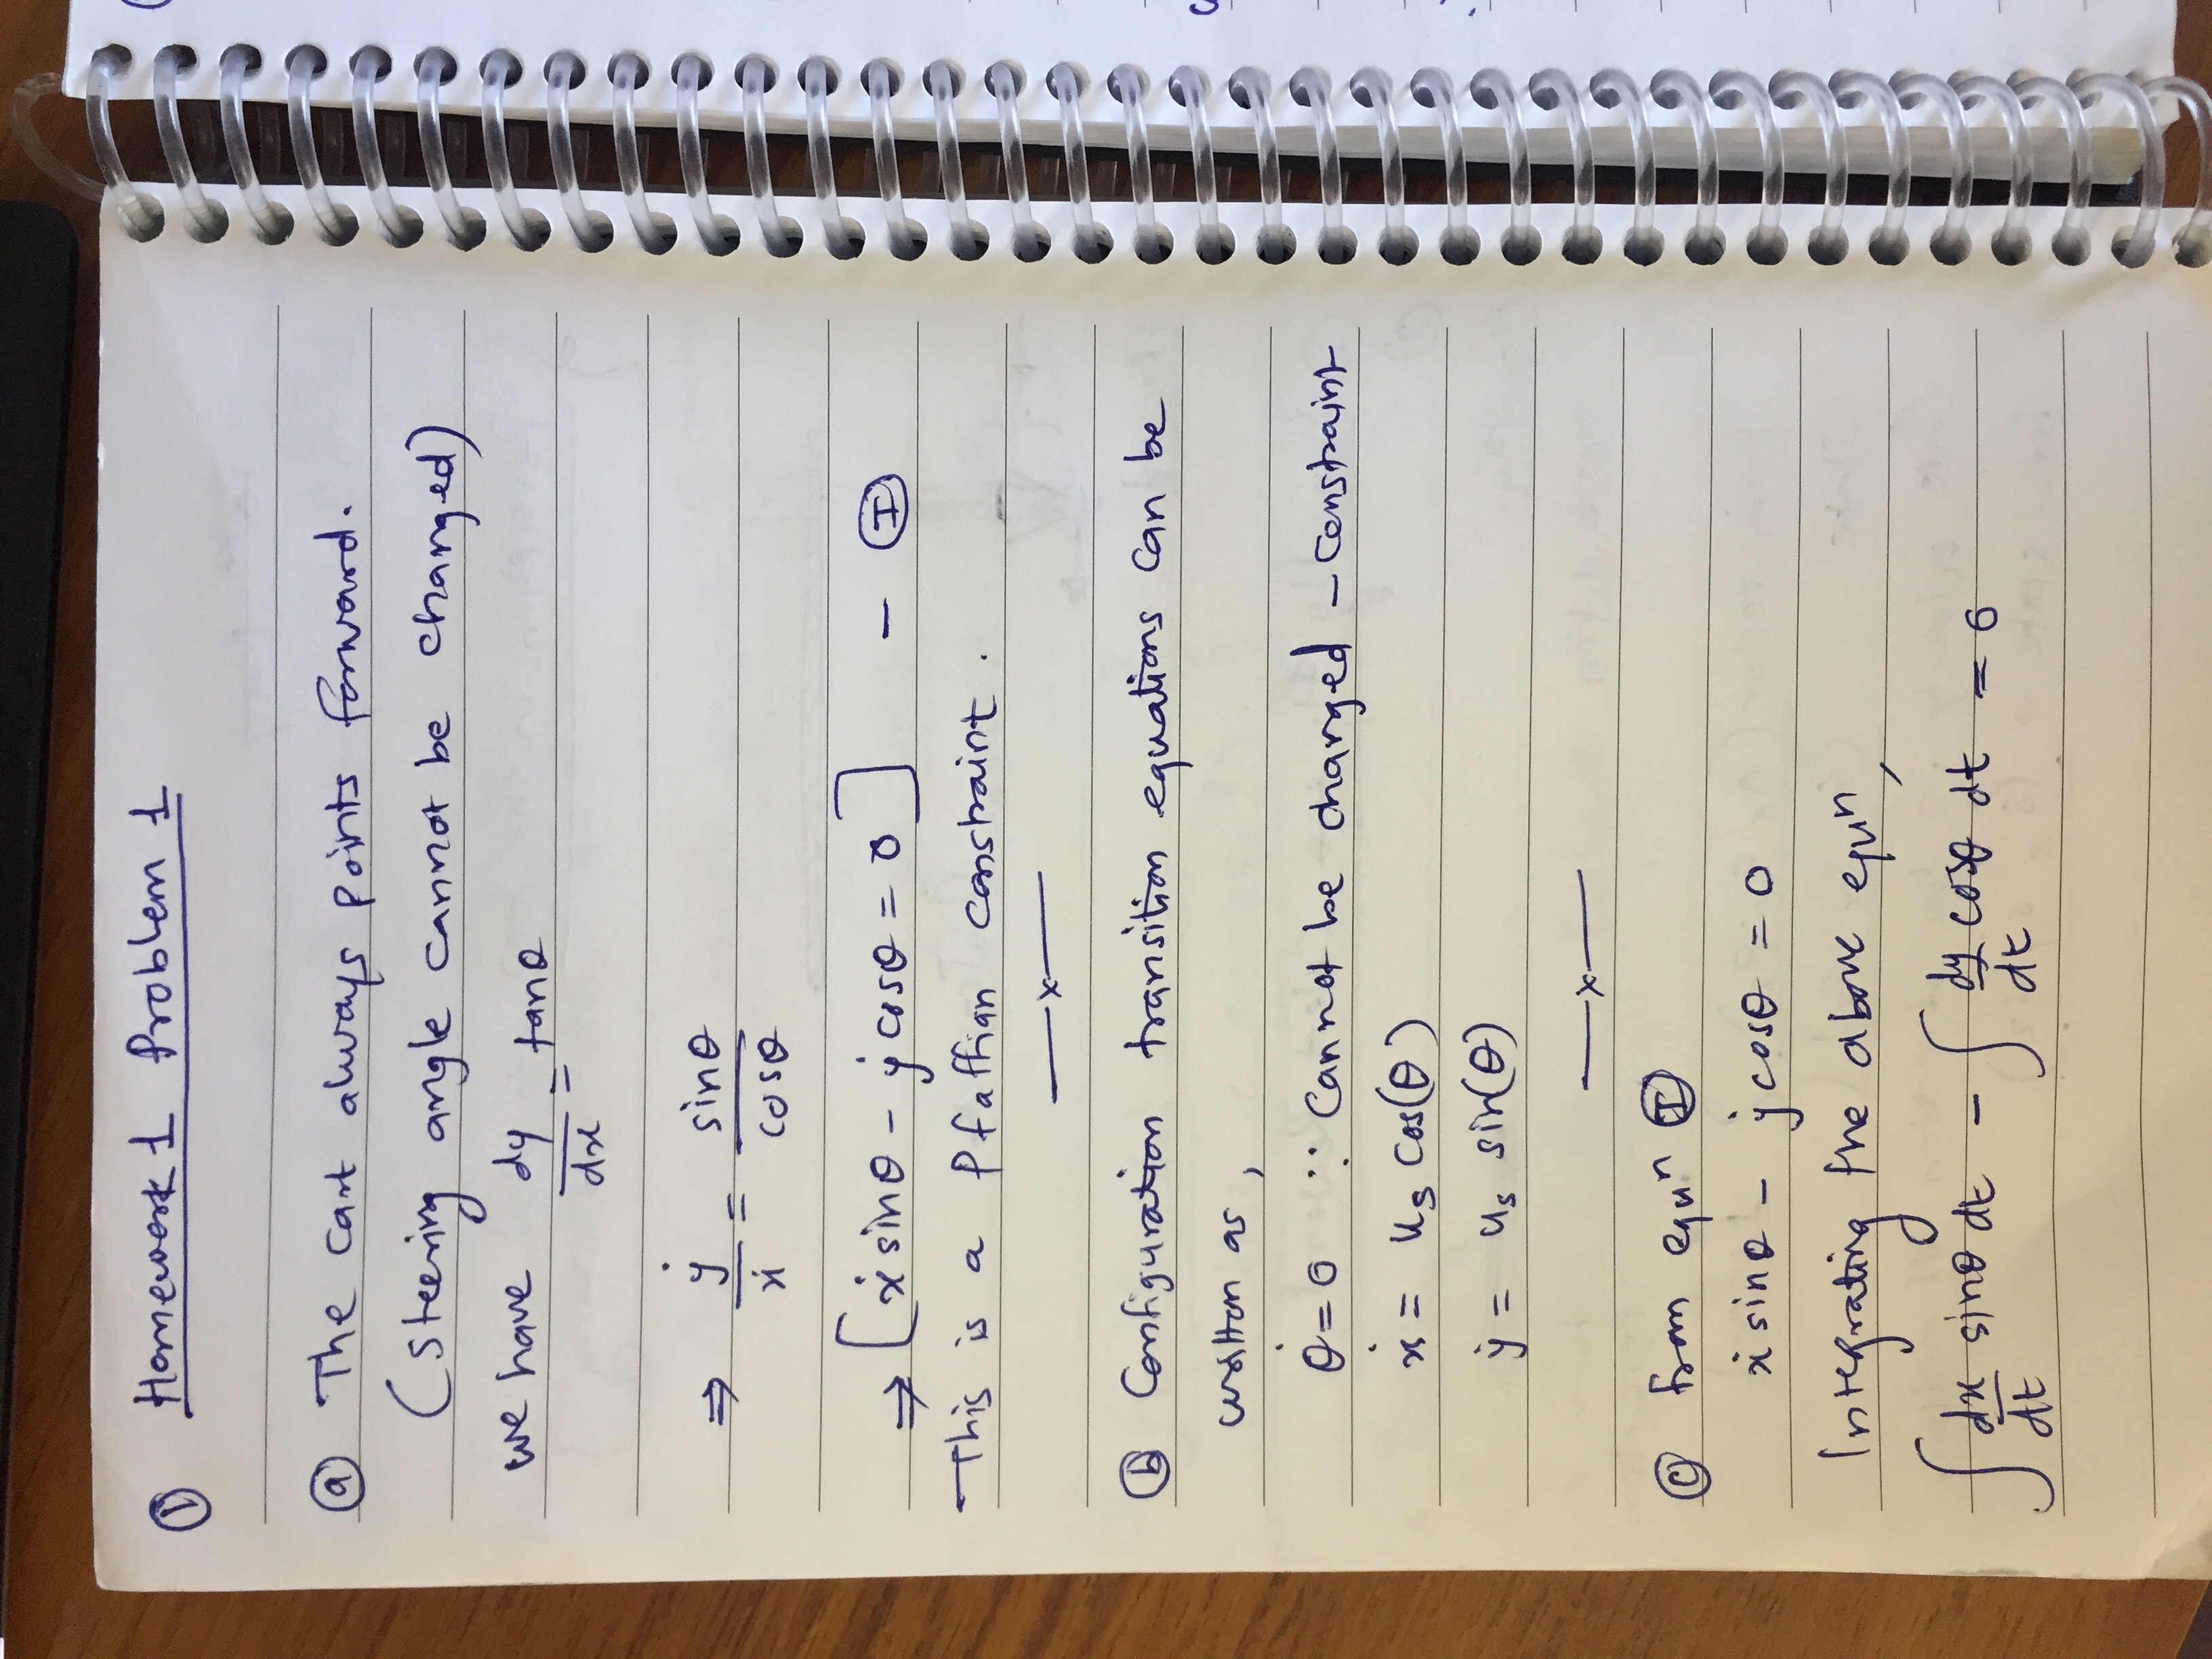 ① Homework 1 Problem 1
ⓐ The cart always points forward.
(Steering angle cannot be changed)
we have dy/dx = tanθ
⇒ ẏ/ẋ = sinθ/cosθ
⇒ [ẋ sinθ - ẏ cosθ = 0] - Ⓘ
This is a Pfaffian constraint.
—x—
ⓑ Configuration transition equations can be
written as,
θ̇ = 0 ∵ Cannot be changed - constraint
ẋ = u_s cos(θ)
ẏ = u_s sin(θ)
—x—
ⓒ from equⁿ Ⓘ
ẋ sinθ - ẏ cosθ = 0
Integrating the above equⁿ,
∫ dx/dt sinθ dt - ∫ dy/dt cosθ dt = 0